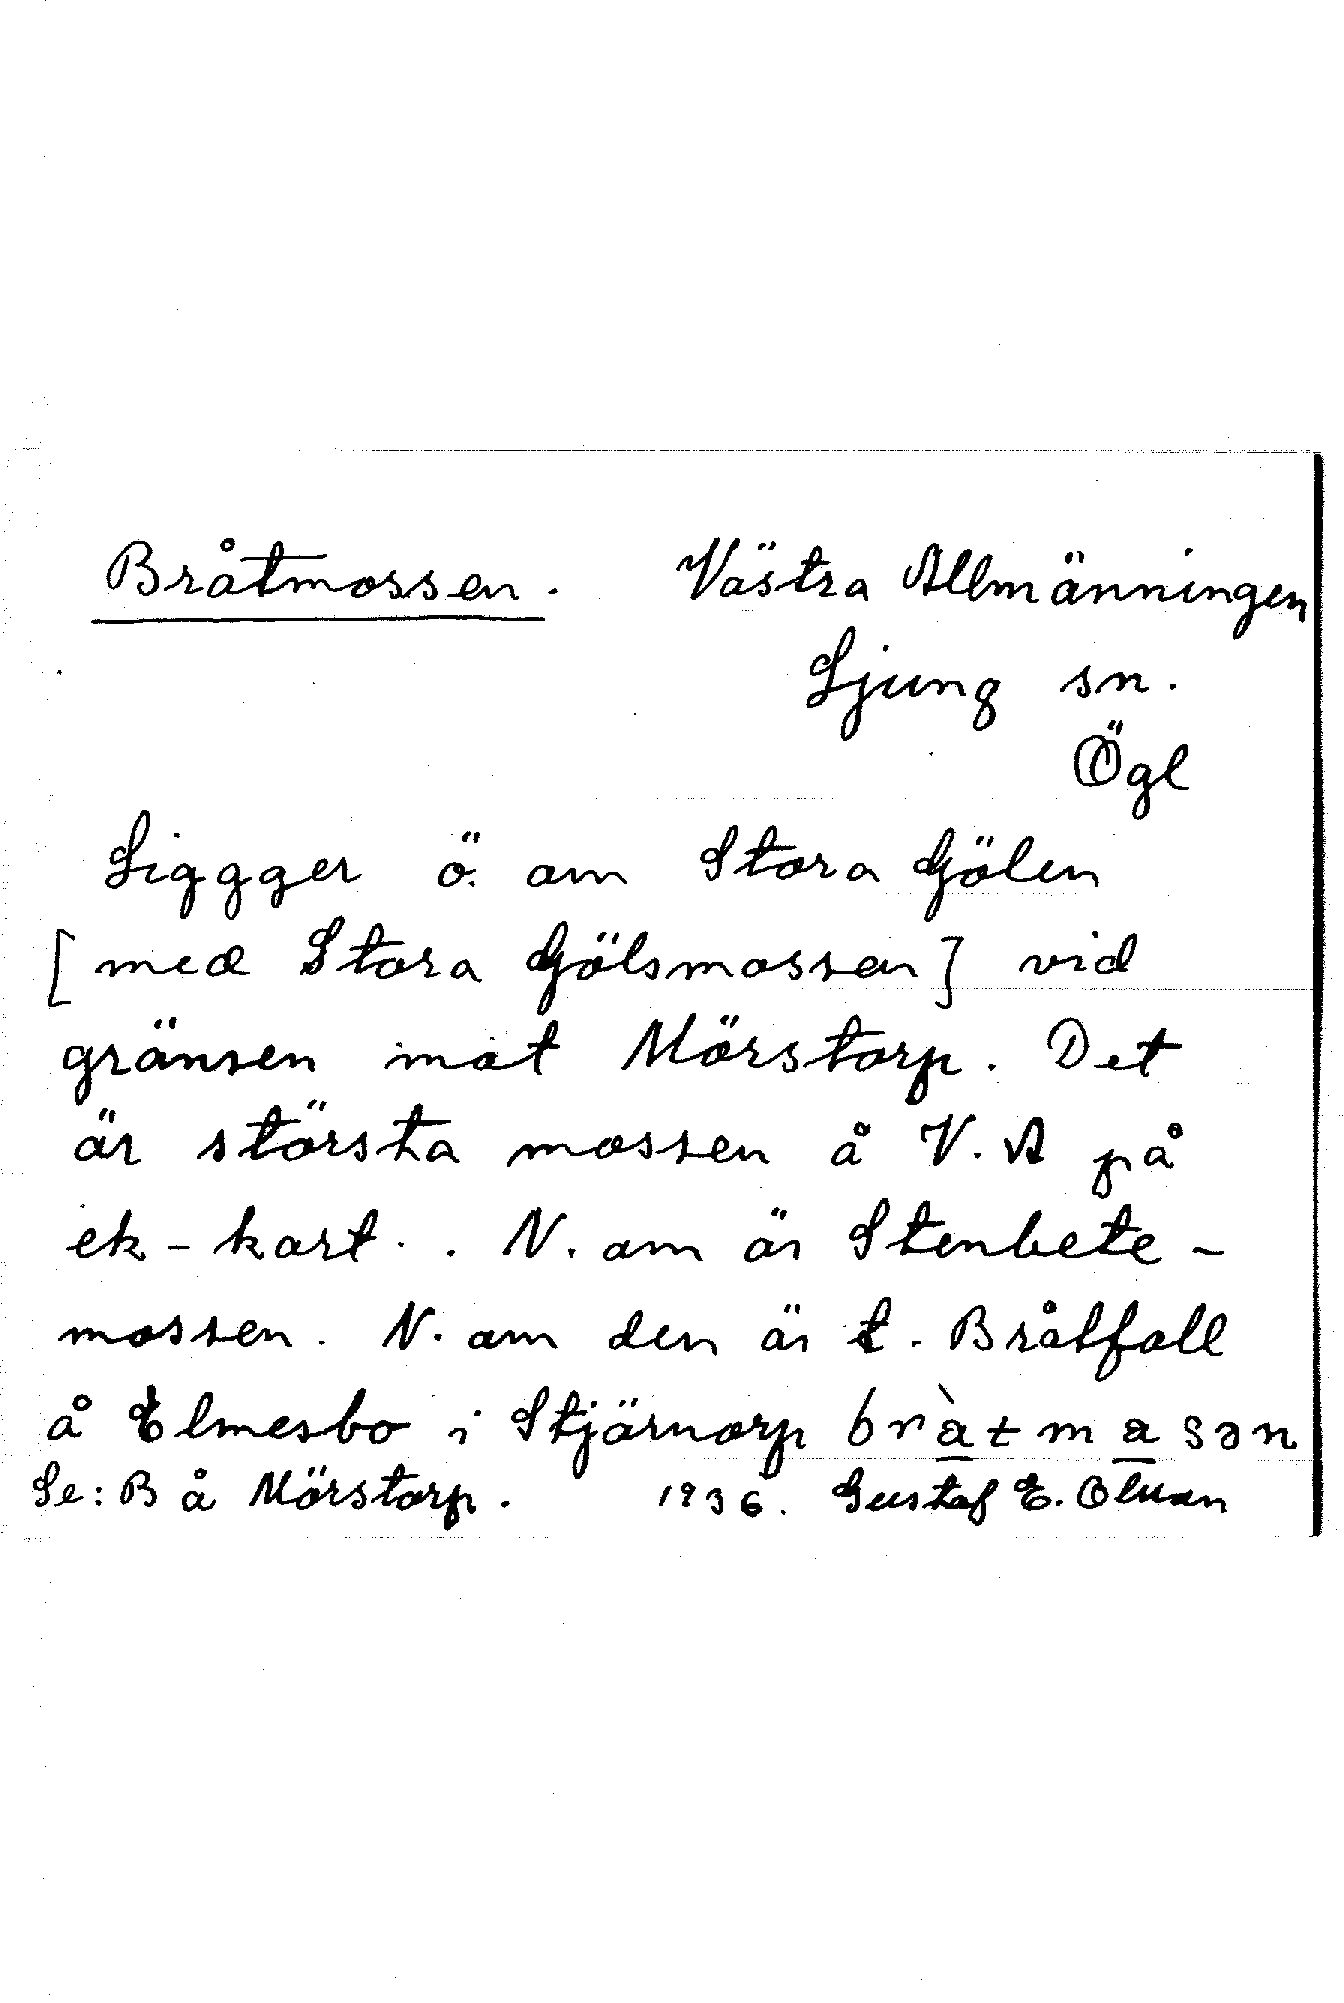 Bråtmossen. Västra Allmänningen
Ljung sn.
Ögl
Ligger ö. om Stora Gölen
[med Stora Gölsmossen] vid
gränsen mot Mörstorp. Det
är största mossen å V. A på
ek-kart. . N. om är Stenbete-
mossen. N. om den är t. Bråtfall
å Elmesbo i Stjärnorp bràtmasən
Se: B å Mörstorp. 1936. Gustaf E. Olsson